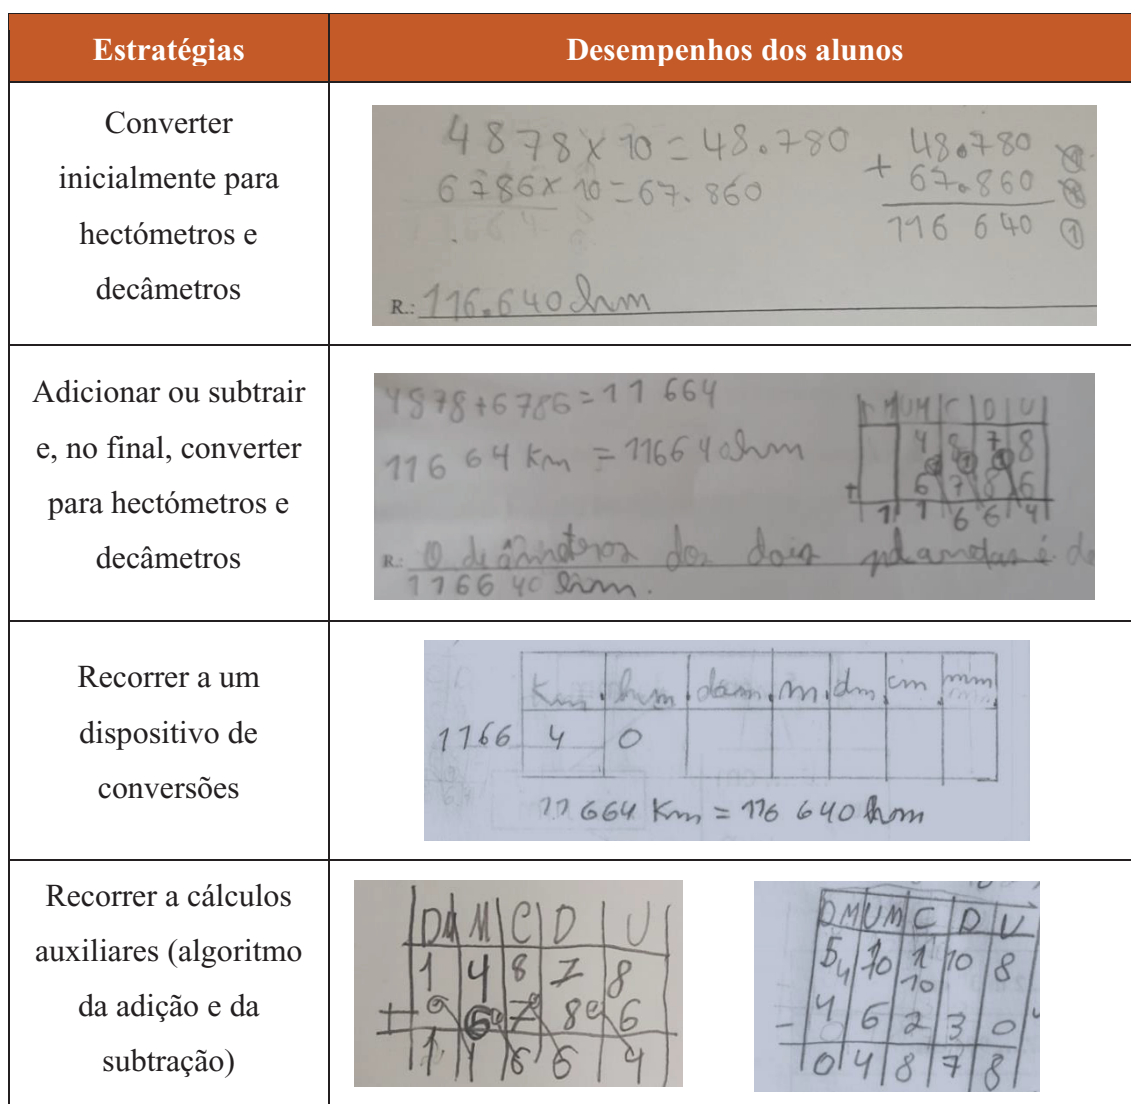 Estratégias
Desempenhos dos alunos
Converter
inicialmente para
hectómetros e
decâmetros
4878 x 10 = 48.780
6786 x 10 = 67.860
48.780
+ 67.860
116 640
R.: 116.640 hm
Adicionar ou subtrair
e, no final, converter
para hectómetros e
decâmetros
4878+6786=11 664
116 64 Km = 11664 0 hm
M UM C D U
4 8 7 8
+ 6 7 8 6
1 1 6 6 4
R.: O deâmetros dos dois planetas é de
1166 40 hm.
Recorrer a um
dispositivo de
conversões
Km hm dam m dm cm mm
1166 4 0
11 664 Km = 116 640 hm
Recorrer a cálculos
auxiliares (algoritmo
da adição e da
subtração)
DM M C D U
1 4 8 7 8
+ 6 7 8 6
1 1 6 6 4
DM UM C D U
5 4 10 1 10 10 8
- 4 6 2 3 0
0 4 8 7 8